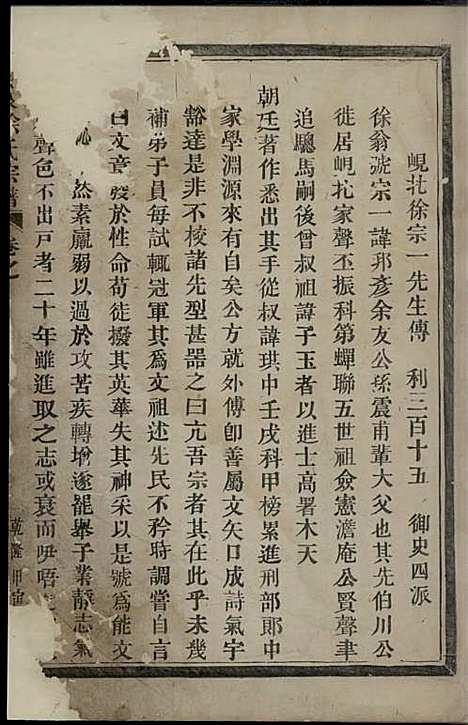 峴北徐宗一先生傳　利三百十五　御史四派
徐翁號宗一諱邦彥余友公孫震甫輩大父也其先伯川公
徙居峴北家聲丕振科第蟬聯五世祖僉憲澹庵公賢聲聿
追驄馬嗣後曾叔祖諱子玉者以進士高署木天
朝廷著作悉出其手從叔諱珙中壬戌科甲榜累進刑部郎中
家學淵源來有自矣公方就外傅卽善屬文矢口成詩氣宇
豁達是非不棱諸先型甚器之曰亢吾宗者其在此乎未幾
補弟子員每試輒冠軍其爲文祖述先民不矜時調嘗自言
曰文章發於性命苟徒撥其英華失其神采以是號爲能文
然素羸弱以過於攻苦疾轉增遂罷舉子業靜志氣
聲色不出戸者二十年雖進取之志或衰而吚唔
徐氏宗譜
卷之
乾隆甲